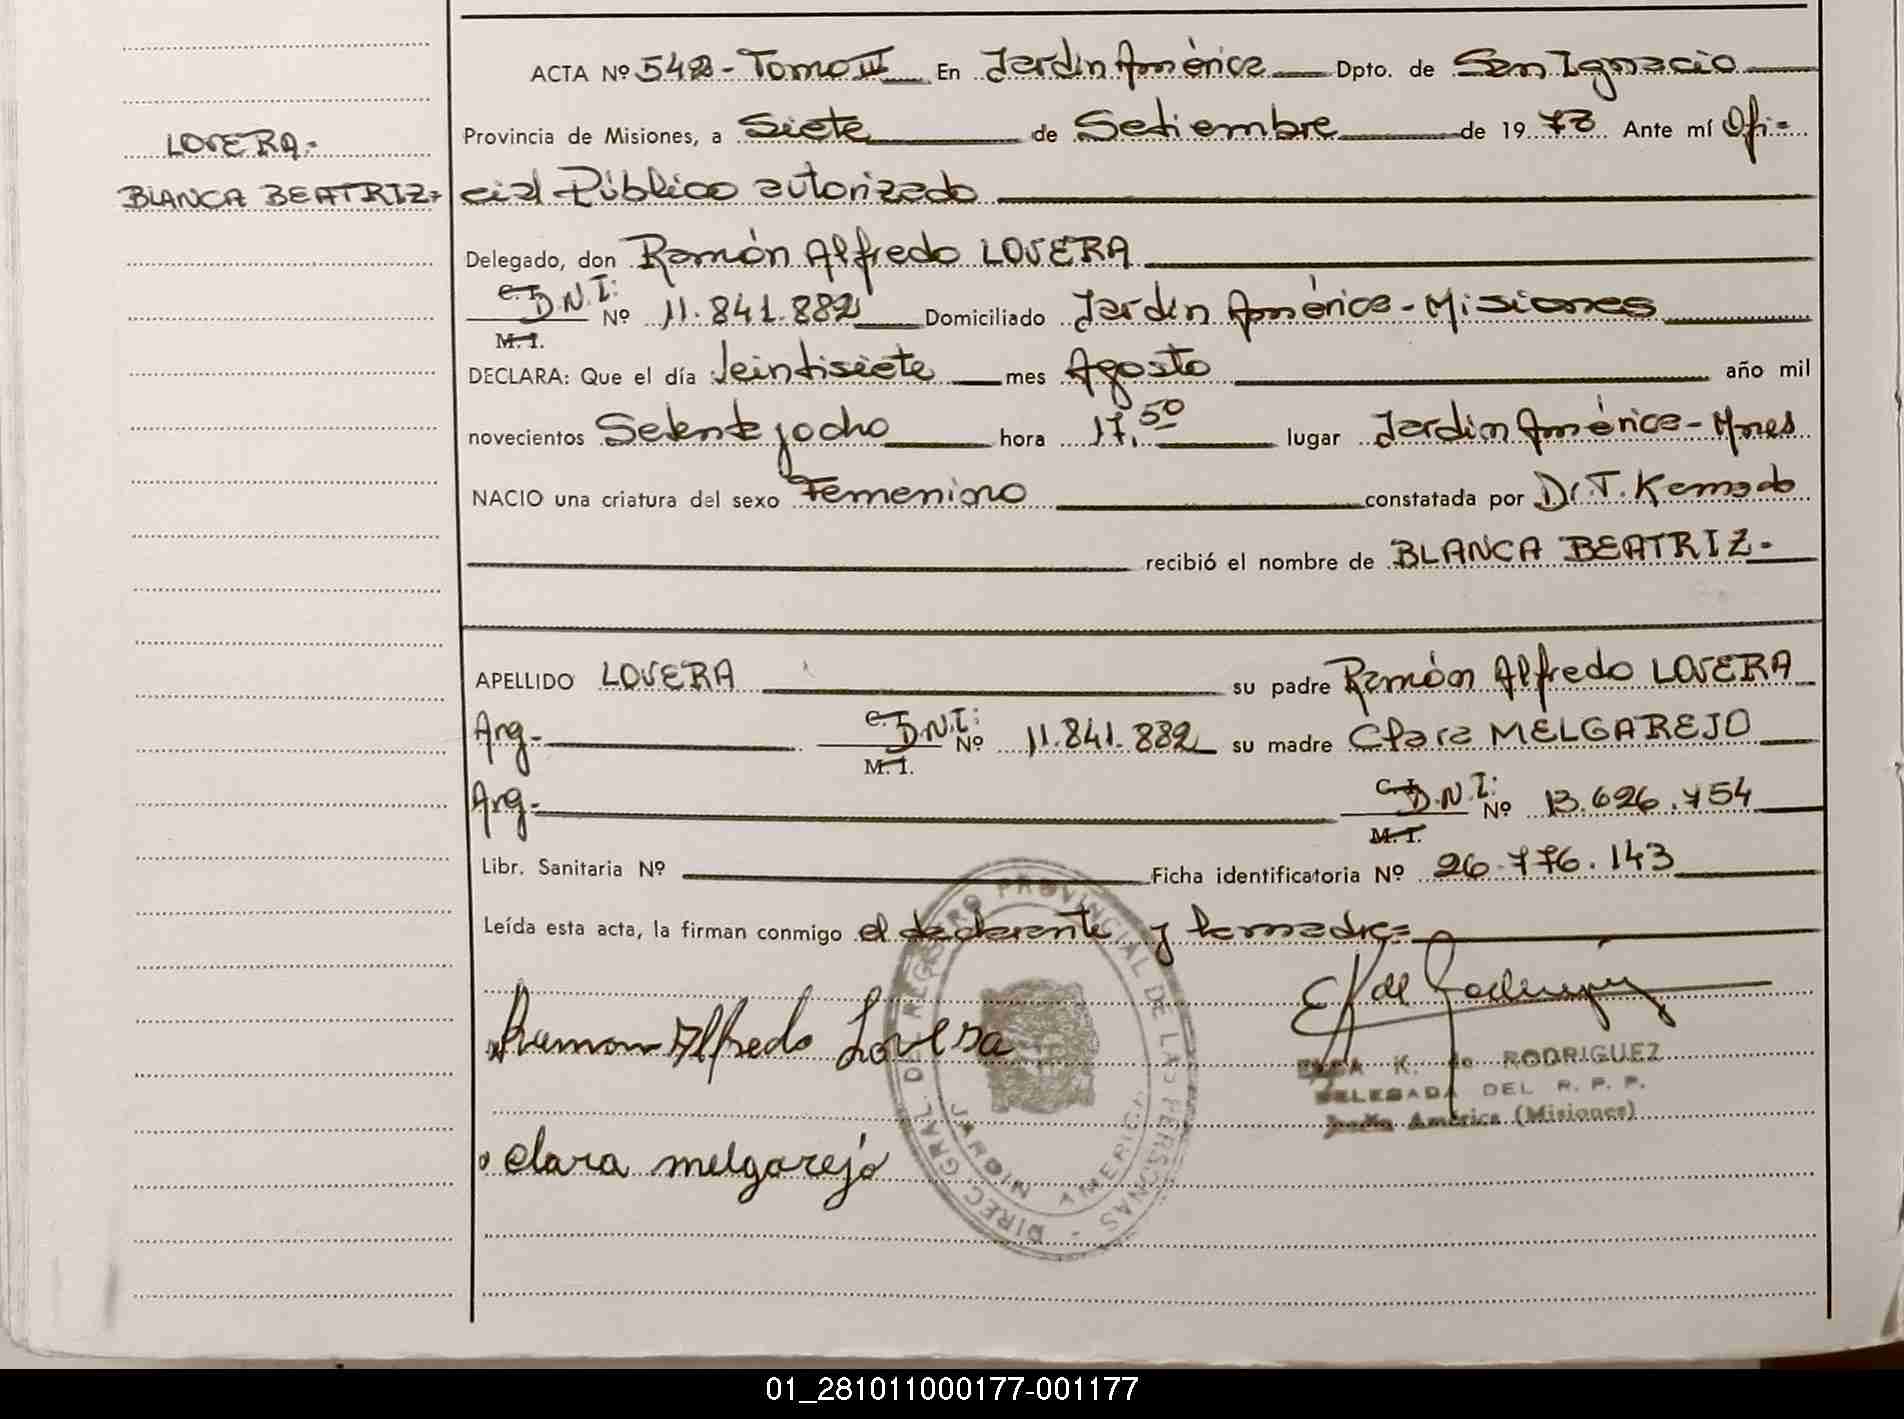 ACTA Nº 542 - Tomo III En Jardín América Dpto. de San Ignacio
Provincia de Misiones, a Siete de Setiembre de 1978 Ante mí Ofi=
LOVERA.-
BLANCA BEATRIZ-
cial Público autorizado
Delegado, don Ramón Alfredo LOVERA
C.I. D.N.I: M.I. Nº 11.841.882 Domiciliado Jardín América - Misiones
DECLARA: Que el día Veintisiete mes Agosto año mil
novecientos Setenta y ocho hora 17,50 lugar Jardín América - Mnes
NACIO una criatura del sexo Femenino constatada por Dr. T. Kamada
recibió el nombre de BLANCA BEATRIZ-
APELLIDO LOVERA su padre Ramón Alfredo LOVERA
Arg- C.I. D.N.I: M.I. Nº 11.841.882 su madre Clara MELGAREJO
Arg- C.I. D.N.I: M.I. Nº 13.626.754
Libr. Sanitaria Nº Ficha identificatoria Nº 26.776.143
Leída esta acta, la firman conmigo el declarante y la madre=
Ramon Alfredo Lovera
K. de RODRIGUEZ
DELEGADA DEL R. P. P.
Jardín América (Misiones)
Clara melgarejo
DIREC. GRAL. DEL REGISTRO PROVINCIAL DE LAS PERSONAS -
JARDIN AMERICA
01_281011000177-001177